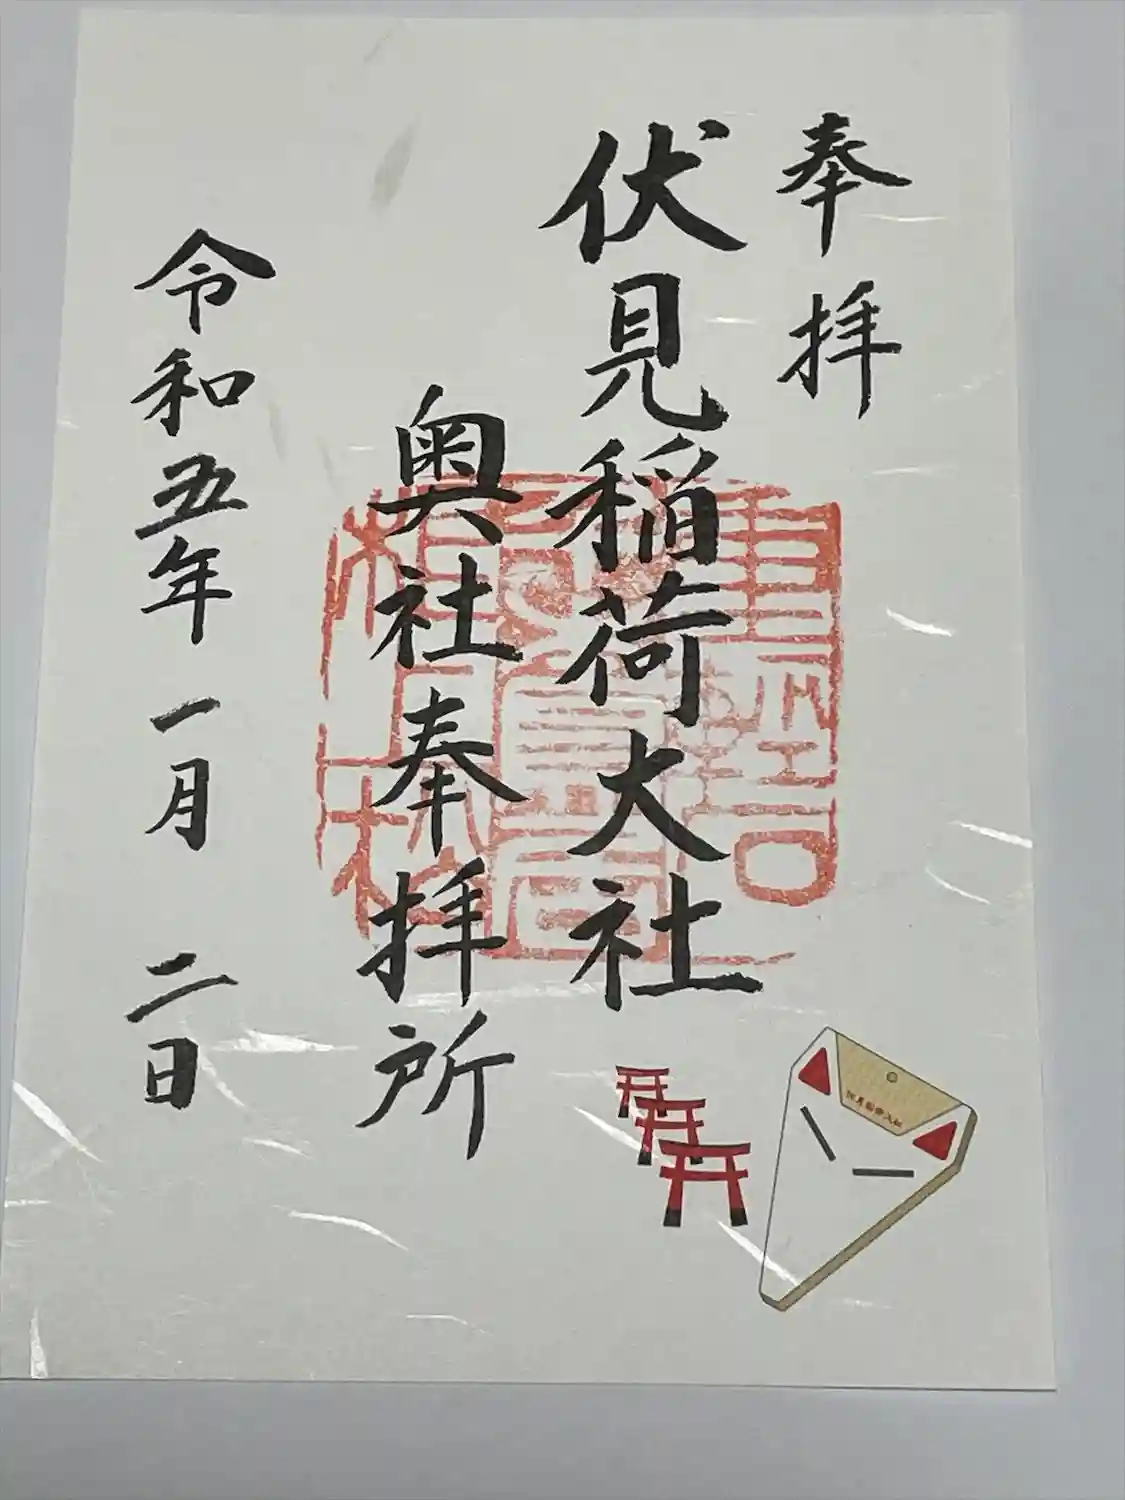 奉拝
伏見稲荷大社
奥社奉拝所
令和五年一月二日
伏見稲荷大社